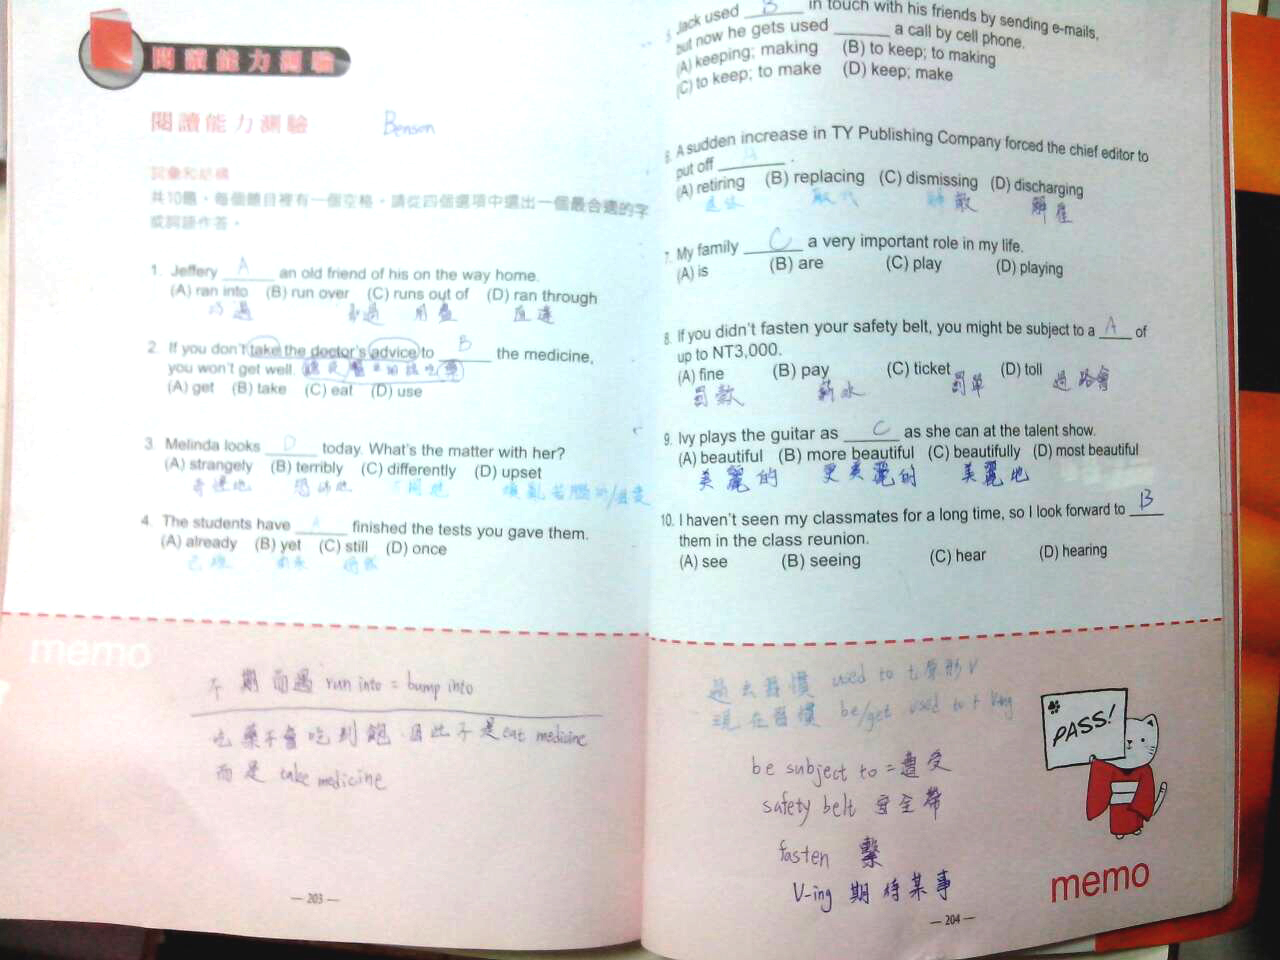 閱讀能力測驗
閱讀能力測驗 Benson
詞彙和結構
共10題，每個題目裡有一個空格。請從四個選項中選出一個最合適的字
或詞語作答。
1. Jeffery A an old friend of his on the way home.
(A) ran into (B) run over (C) runs out of (D) ran through
巧遇 用盡 直達
2. If you don't take the doctor's advice to B the medicine,
you won't get well.
(A) get (B) take (C) eat (D) use
3. Melinda looks D today. What's the matter with her?
(A) strangely (B) terribly (C) differently (D) upset
奇怪地 恐怖地 不同地
4. The students have A finished the tests you gave them.
(A) already (B) yet (C) still (D) once
已經 尚未
memo
不期而遇 run into = bump into
吃藥不會吃到飽，因此不是eat medicine
而是 take medicine
— 203 —
5. Jack used B in touch with his friends by sending e-mails,
but now he gets used ______ a call by cell phone.
(A) keeping; making (B) to keep; to making
(C) to keep; to make (D) keep; make
6. A sudden increase in TY Publishing Company forced the chief editor to
put off A .
(A) retiring (B) replacing (C) dismissing (D) discharging
退休 取代 解散 解雇
7. My family C a very important role in my life.
(A) is (B) are (C) play (D) playing
8. If you didn't fasten your safety belt, you might be subject to a A of
up to NT3,000.
(A) fine (B) pay (C) ticket (D) toll
罰款 薪水 罰單 過路費
9. Ivy plays the guitar as C as she can at the talent show.
(A) beautiful (B) more beautiful (C) beautifully (D) most beautiful
美麗的 更美麗的 美麗地
10. I haven't seen my classmates for a long time, so I look forward to B
them in the class reunion.
(A) see (B) seeing (C) hear (D) hearing
過去習慣 used to + 原形V
現在習慣 be/get used to + Ving
be subject to = 遭受
safety belt 安全帶
fasten 繫
V-ing 期待某事
PASS!
memo
— 204 —